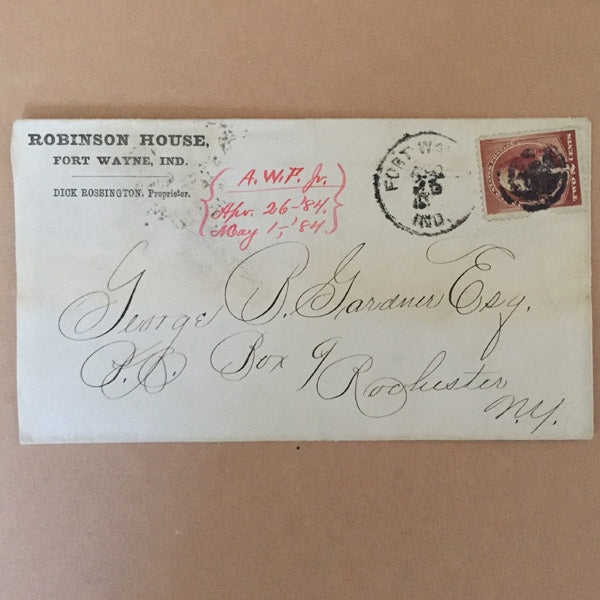 ROBINSON HOUSE,
FORT WAYNE, IND.
DICK ROSSINGTON, Proprietor.
A. W. P. Jr.
Apr. 26-'84.
May 1-, '84.
FORT WAY
26
IND.
George B. Gardner Esq.
P.O. Box 9
Rochester
N.Y.